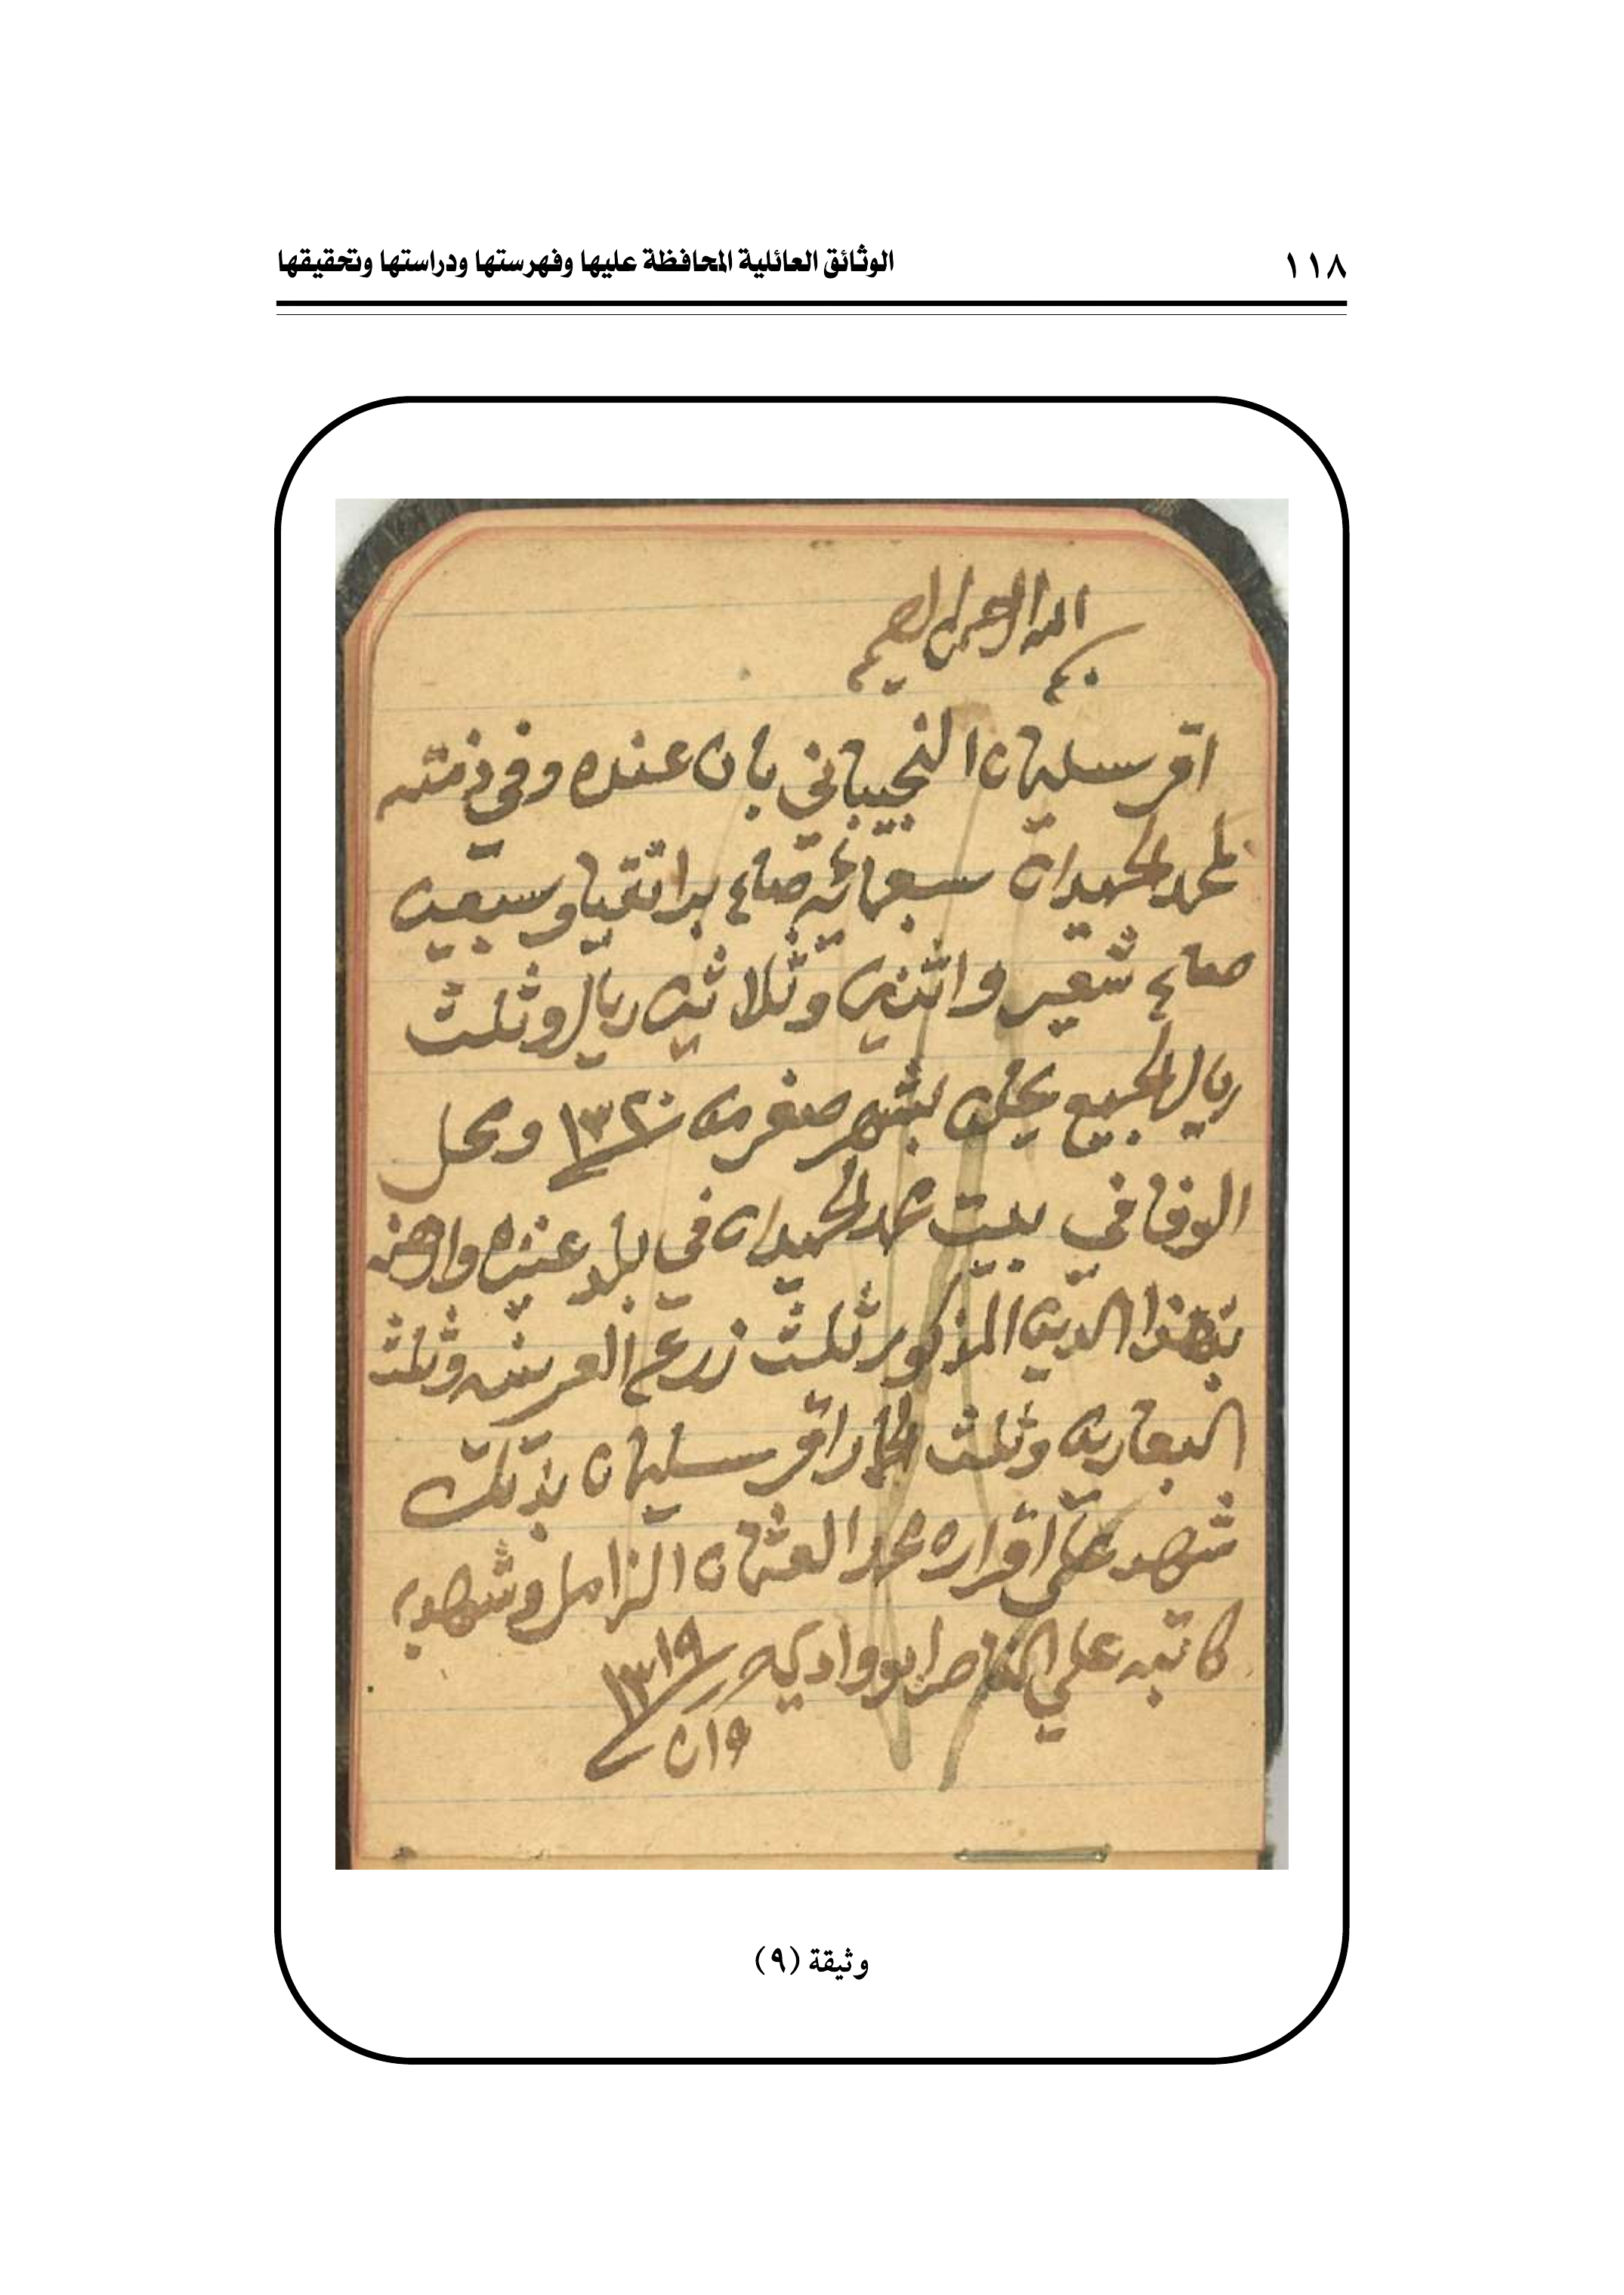 ١١٨
الوثائق العائلية المحافظة عليها وفهرستها ودراستها وتحقيقها
بسم الله الرحمن الرحيم
اقر سليمان النجيباني بان عنده وفي ذمته
لمحمد الحميدان سبعمائة صاع بر انقيا وسبعين
صاع شعير واثنين وثلاثين ريال وثلث
ريال الجميع يحلن بشهر صفر من ١٣٢٠ ومحل
الوفا في بيت محمد الحميدان في بلد عنيزه وارهنه
بهذا الدين المذكور ثلث زرع العريش وثلث
البعارين وثلث الحمار اقر سليمان بذلك
شهد على اقراره محمد العثمان الزامل وشهد به
كاتبه علي الناصر ابو وادي
١٣١٩
وثيقة (٩)